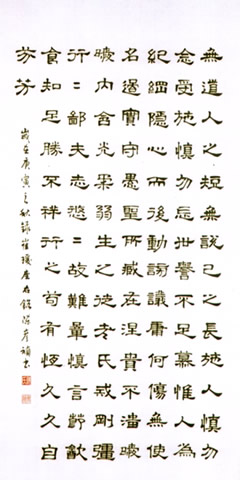 無道人之短無說己之長施人慎勿
念受施慎勿忘世譽不足慕惟仁為
紀綱隱心而後動謗議庸何傷無使
名過實守愚聖所臧在涅貴不淄曖
曖內含光柔弱生之徒老氏戒剛彊
行〻鄙夫志悠〻故難量慎言節飲
食知足勝不祥行之苟有恆久久自
芬芳
歲在庚寅之秋錄崔瑗座右銘